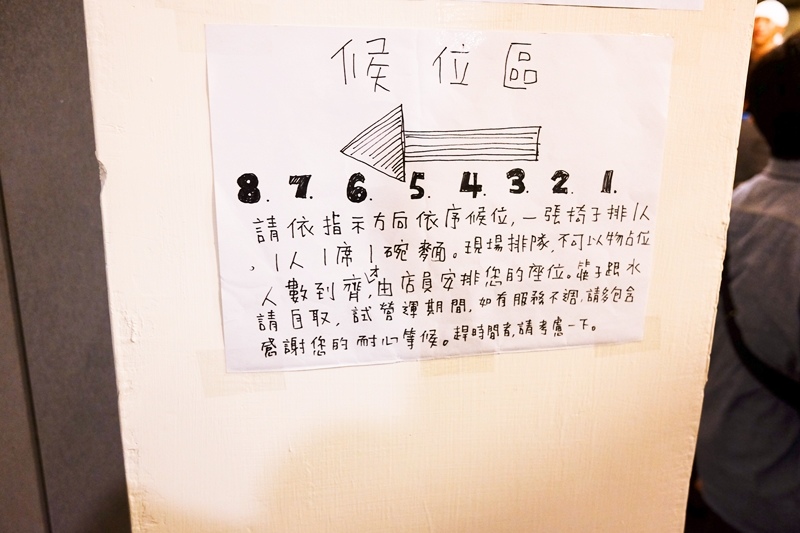 候位區
8. 7. 6. 5. 4. 3. 2. 1.
請依指示方向依序候位,一張椅子排1人
,1人1席1碗麵。現場排隊,不可以物占位
人數到齊,才由店員安排您的座位。筷子跟水
請自取,試營運期間,如有服務不週,請多包含
感謝您的耐心等候。趕時間者,請考慮一下。